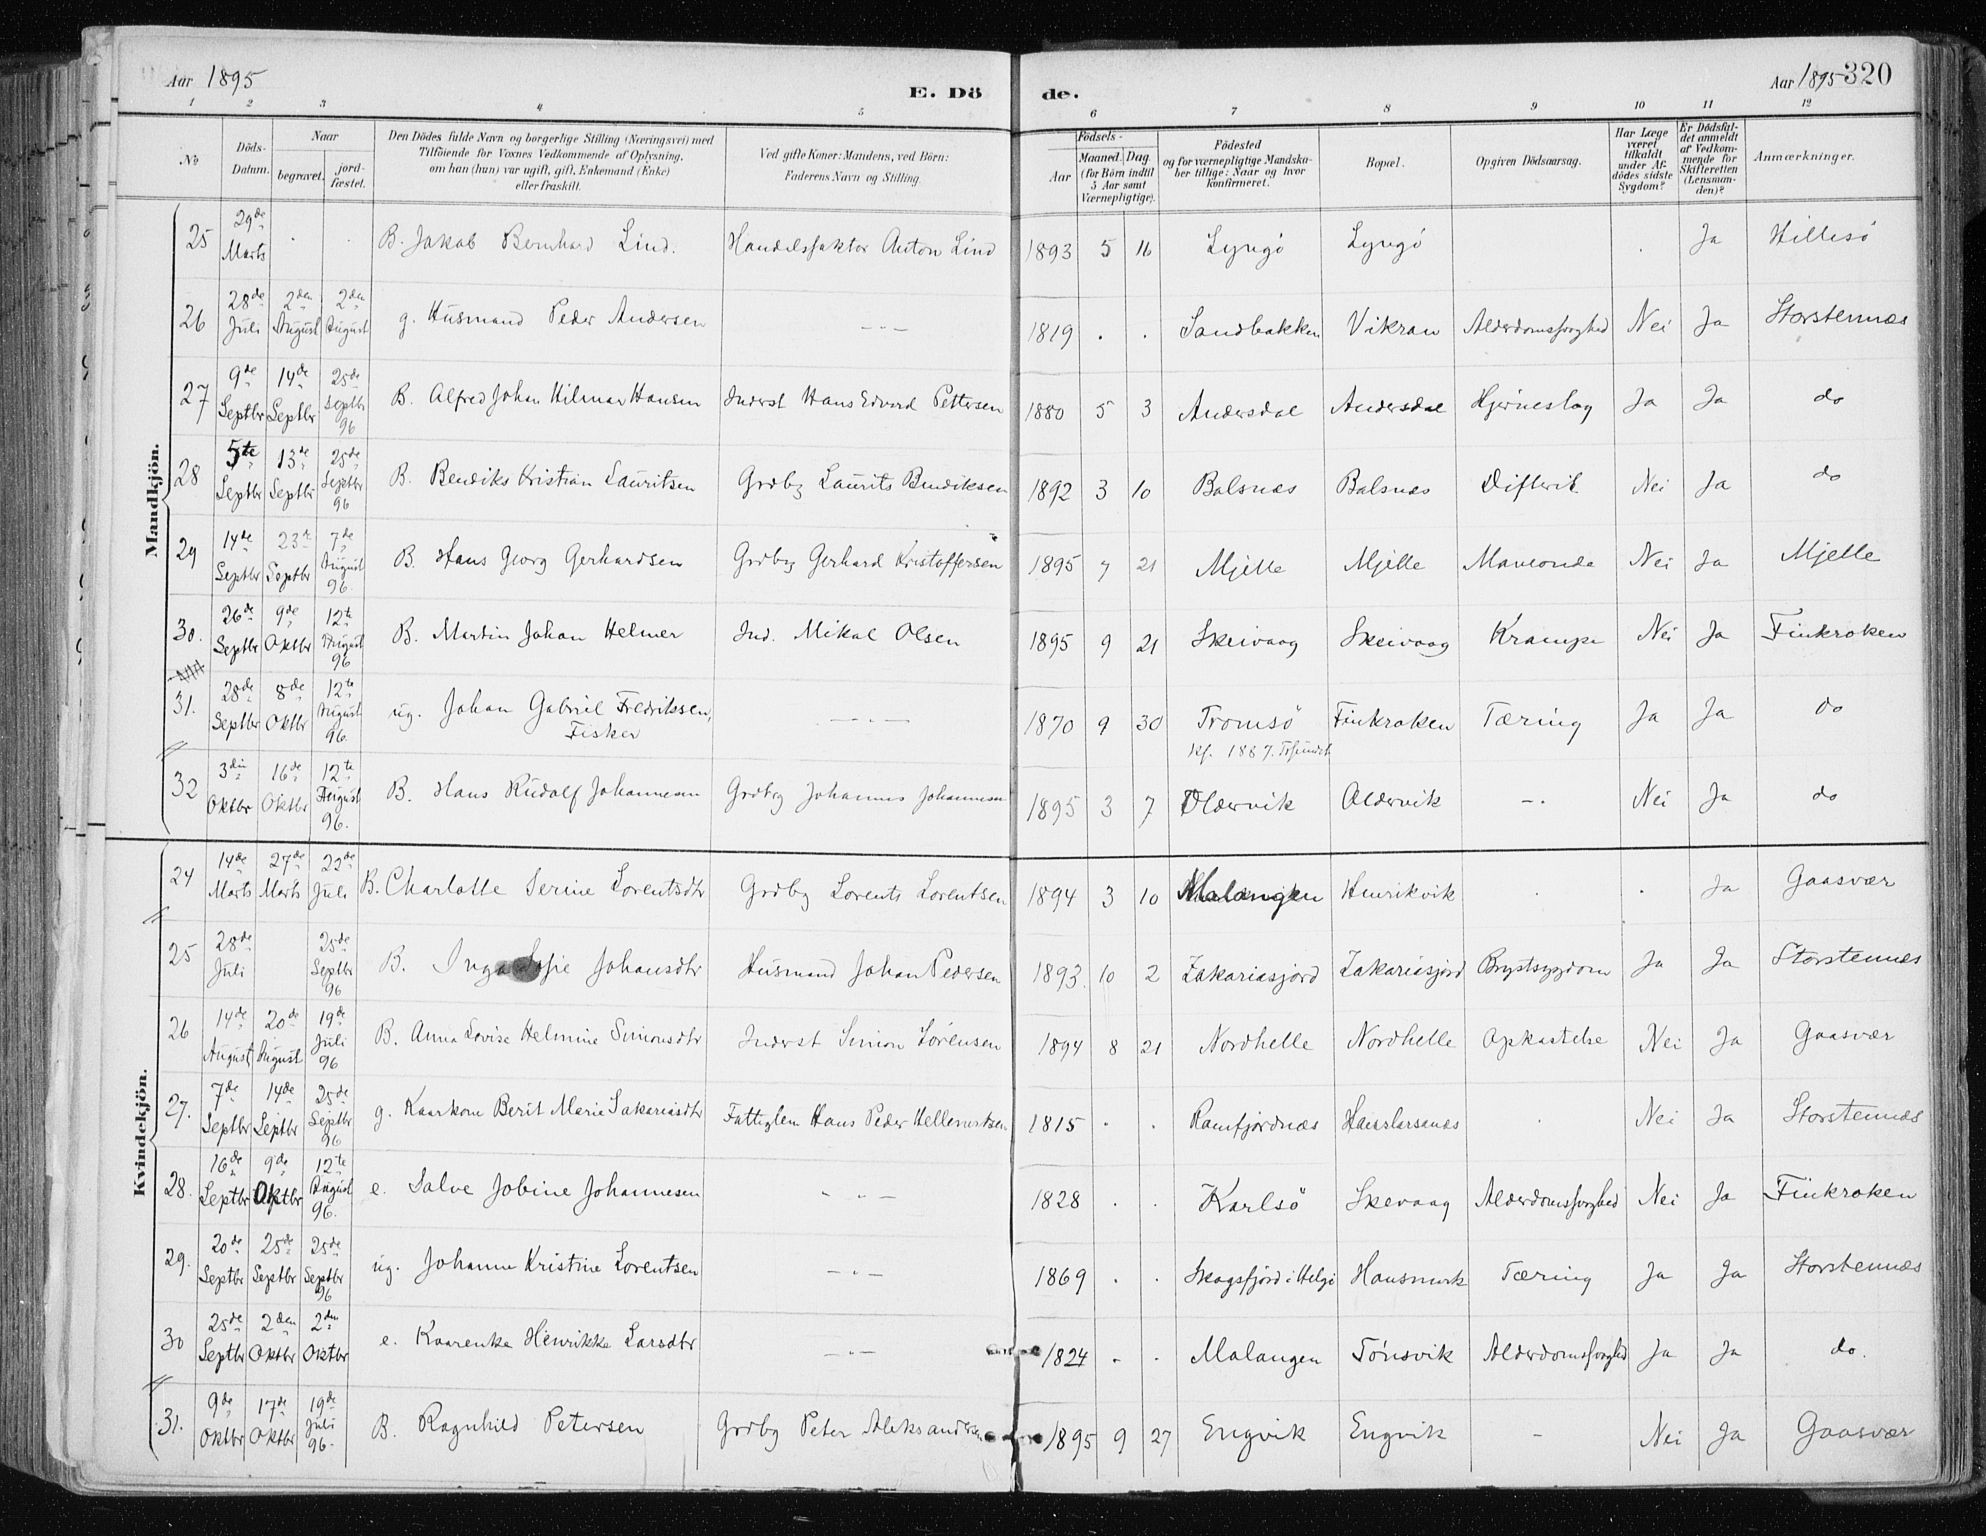 Aar 1895 E. Dö de. Aar 1895 320
1 2 3 4 5 6 7 8 9 10 11 12
No
Döds-Datum.
Naar
begravet.
jord-fæstet.
Den Dödes fulde Navn og borgerlige Stilling (Næringsvei) med
Tilföiende for Voxnes Vedkommende af Oplysning,
om han (hun) var ugift, gift, Enkemand (Enke)
eller fraskilt.
Ved gifte Koner: Mandens, ved Börn:
Faderens Navn og Stilling.
Födsels-
Aar
Maaned. Dag.
(for Börn indtil
5 Aar samt
Værnepligtige).
Födested
og for værnepligtige Mandska-
ber tillige: Naar og hvor
konfirmeret.
Bopæl.
Opgiven Dödsaarsag.
Har Læge
været
tilkaldt
under Af-
dödes sidste
Sygdom?
Er Dödsfal-
det anmeldt
af Vedkom-
mende for
Skifteretten
(Lensman-
den)?
Anmærkninger.
Mandkjön.
25 29de Marts . . B. Jakob Bernhard Lind. Handelsfaktor Anton Lind 1893 5 16 Lyngö Lyngö . Ja Hillesö
26 28de Juli 2den August 2den August g. Husmand Peder Andersen -"- 1819 . . Sandbakken Vikran Alderdomssvaghed Nei Ja Storstennæs
27 9de Septbr 14de Septbr 25de Septbr 96 B. Alfred Johan Hilmar Hansen Inderst Hans Edvard Pettersen 1880 5 3 Andersdal Andersdal Hjerneslag Ja Ja do
28 5te Septbr 13de Septbr 25de Septbr 96 B. Bendiks Kristian Lauritsen Grdbg Laurits Bendiksen 1892 3 10 Balsnæs Balsnæs Difterit Nei Ja do
29 14de Septbr 23de Septbr 7de August 96. B. Hans Georg Gerhardsen Grdbg Gerhard Kristoffersen 1895 7 21 Mjelle Mjelle Maveonde Nei Ja Mjelle
30. 26de Septbr 9de Oktbr 12te August 96 B. Martin Johan Helmer Ind. Mikal Olsen 1895 9 21 Skeivaag Skeivaag Krampe Nei Ja Finkroken
31. 28de Septbr 8de Oktbr 12te August 96. ug. Johan Gabriel Fredrikssen, -"- 1870 9 30 Tromsö Finkroken Tæring Ja Ja do
Fisker kf. 1887.
32 3die Oktbr 16de Oktbr 12te August 96. B. Hans Rudolf Johannesen Grdbg Johannes Johannesen 1895 3 7 Oldervik Oldervik -. Nei Ja do
Kvindekjön.
24 14de Marts 27de Marts 22de Juli B. Charlotte Serine Lorentsdtr Grdbg Lorents Lorentsen 1894 3 10 Malangen Henrikvik . . Ja Gaasvær
25 28de Juli 25de Septbr 96 B. Inga Sofie Johansdtr Husmand Johan Pedersen 1893. 10 2 Zakariasjord Zakariasjord Brystsygdom Ja Ja Storstennæs
26 14de August 20de August 19de Juli 96 B. Anna Lovise Helmine Simonsdtr Inderst Simon Sörensen 1894 8 21 Nordhelle Nordhelle Opkastelse Nei Ja Gaasvær
27. 7de Septbr 14de Septbr 25de Septbr 96 g. Kaarkone Berit Marie Sakariasdtr Fattiglem Hans Peder 1815 . . Ramfjordnæs . Nei Ja Storstennæs
28. 16de Septbr 9de Oktbr 12te August 96. e. Salve Jobine Johannesen -"- 1828 . . Karlsö Skevaag Alderdomssvaghed Nei Ja Finkroken
29. 20de Septbr 25de Septbr 25de Septbr 96 ug. Johanne Kristine Lorentsen -"- 1869 . . Skogsfjord i Helgö Tæring Ja Ja Storstennæs
30 25de Septbr 2den Oktbr 2den Oktbr e. Kaarenke Henrikke Larsdtr -"- 1824 . . Malangen Tönsvik Alderdomssvaghed Ja Ja do.
31. 9de Oktbr 17de Oktbr 19de Juli 96. B. Ragnhild Petersen Grdbg Peter Aleksandersen 1895 9 27 Engvik Engvik - Nei Ja Gaasvær